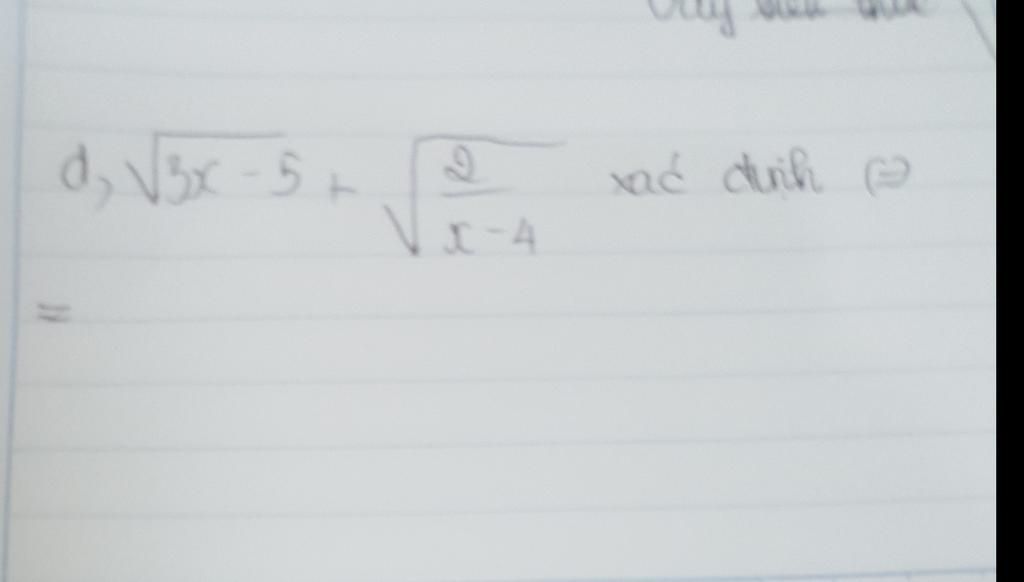 d, √3x - 5 + √2/x - 4 xác định ⇔
=